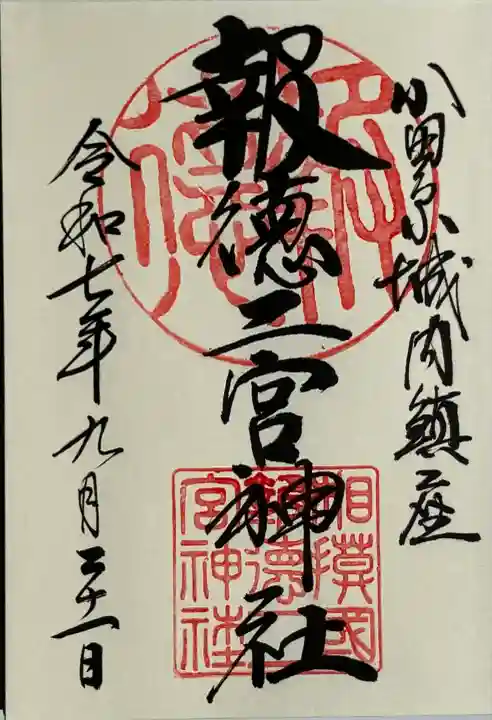 小田原城内鎮座
報徳二宮神社
相模國
報徳二
宮神社
令和七年九月二十一日